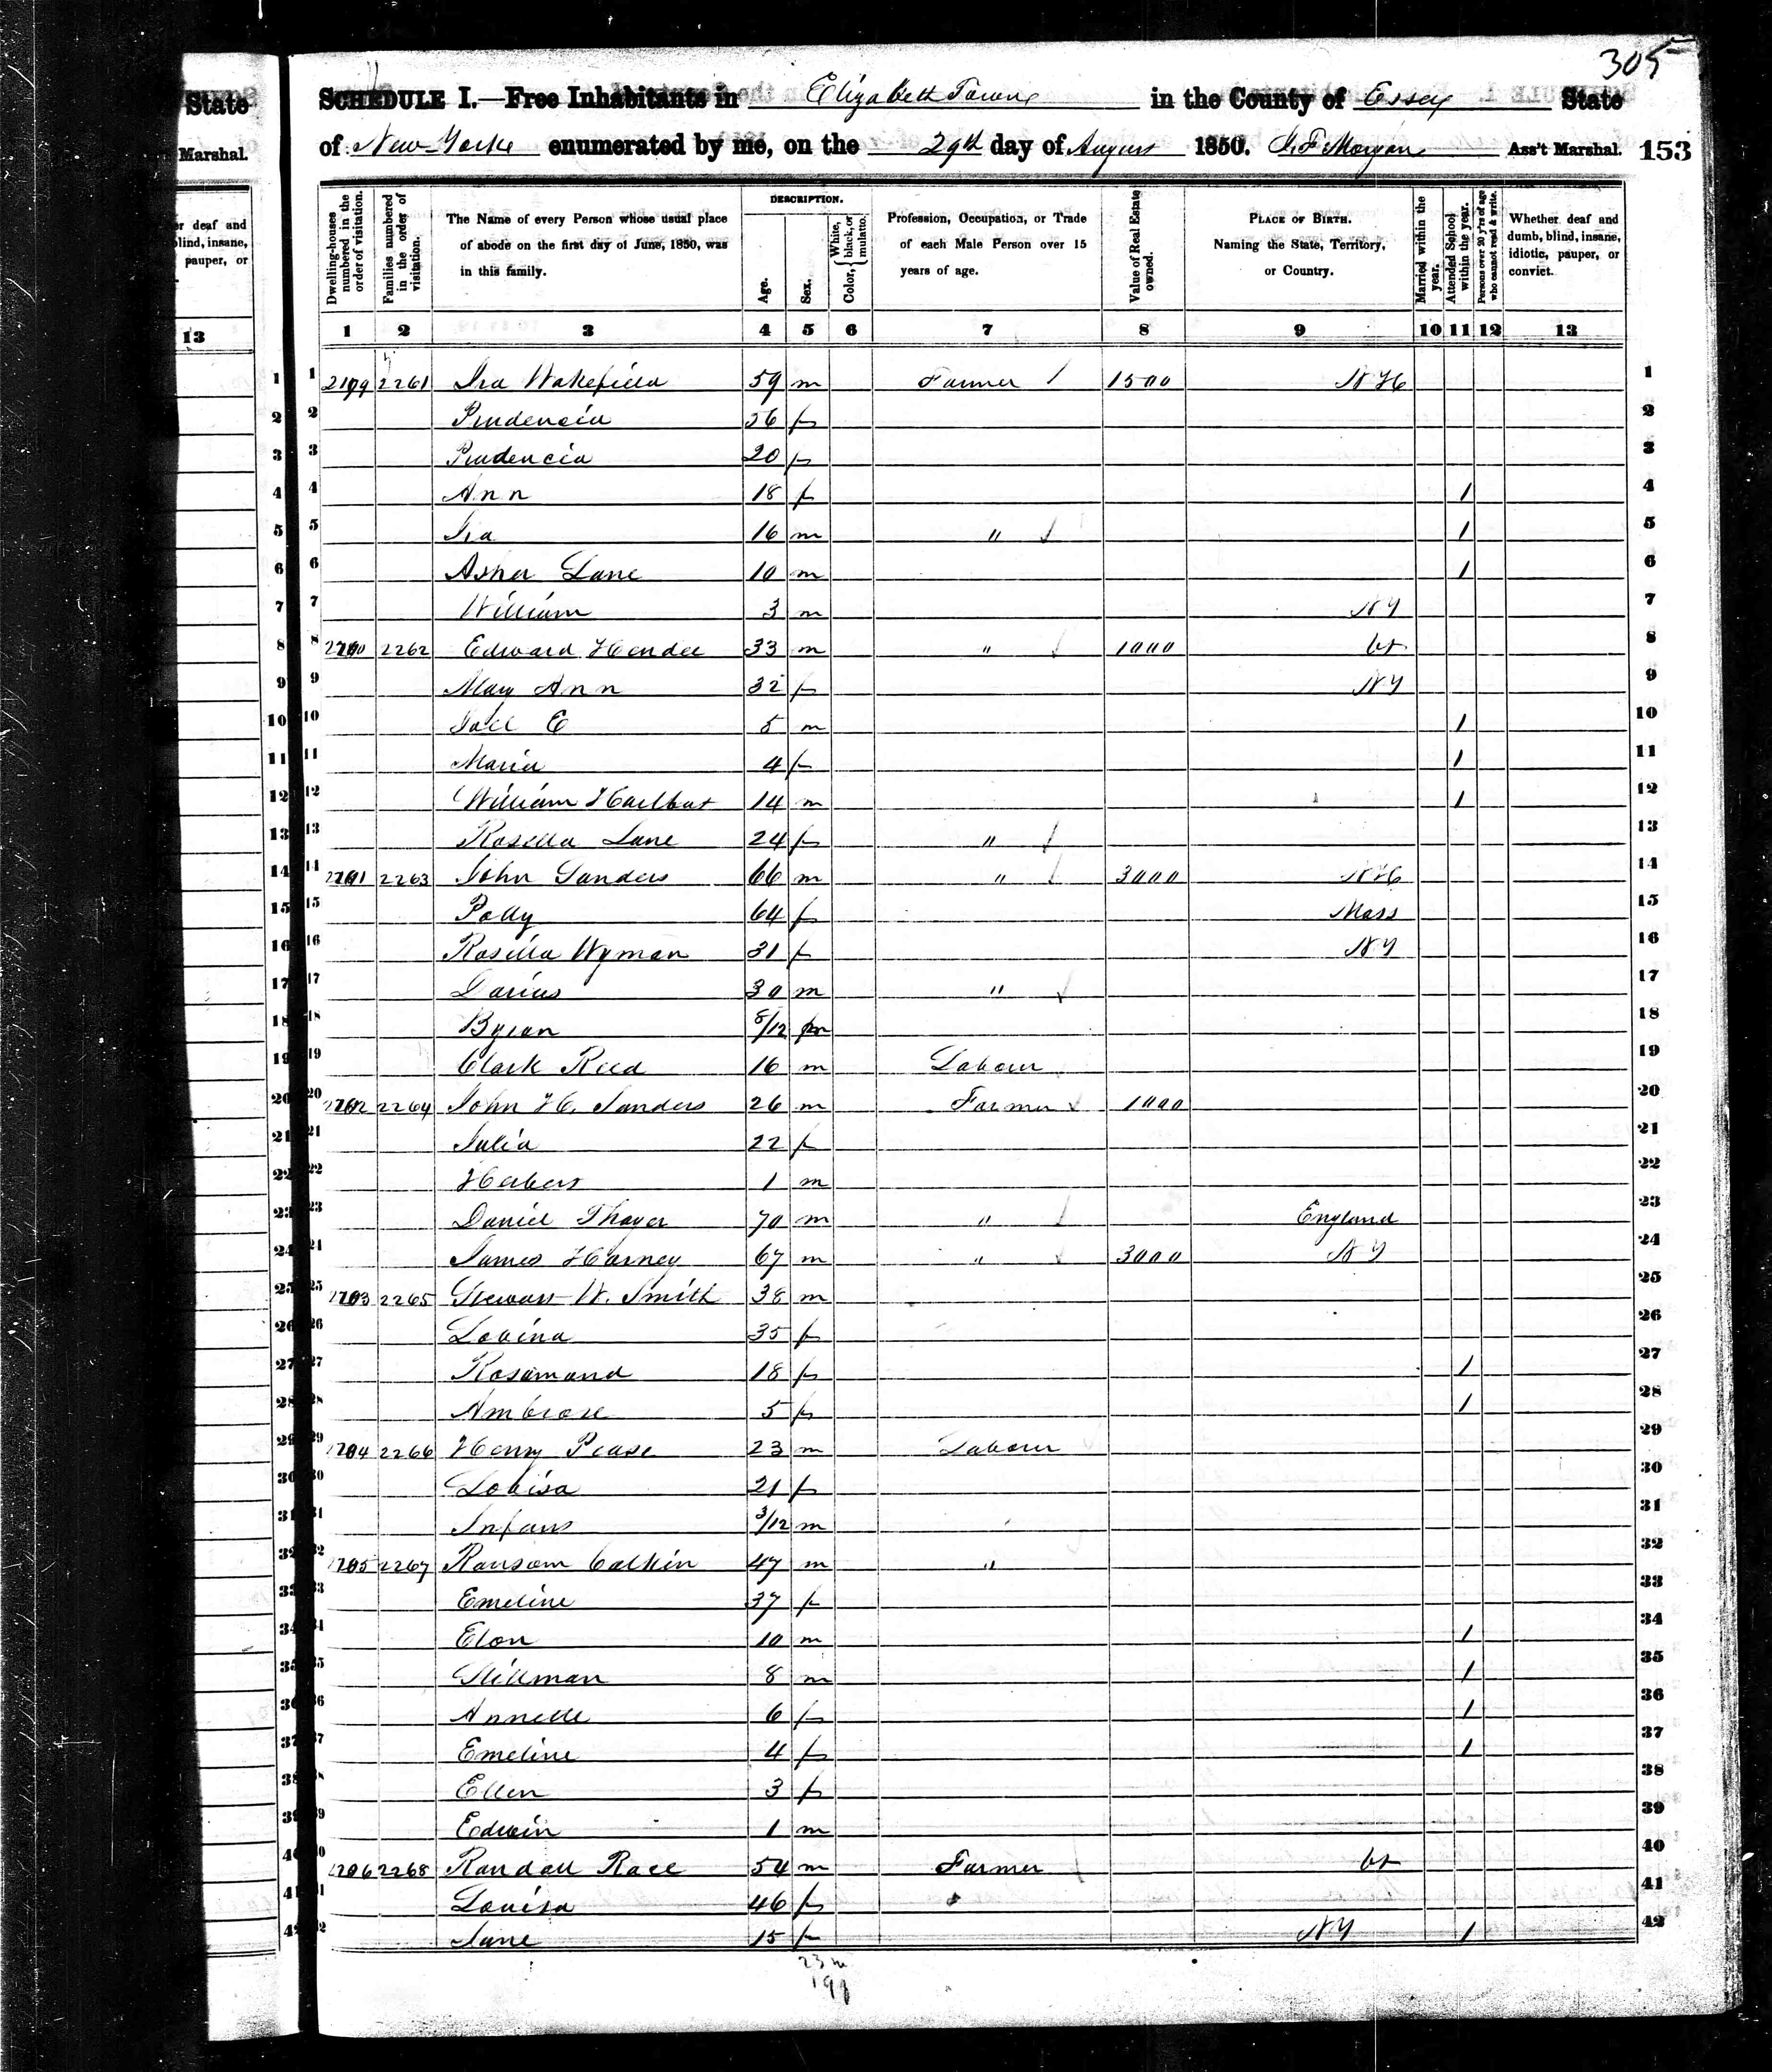 305
SCHEDULE I.—Free Inhabitants in Elizabeth Town in the County of Essex State
of New York enumerated by me, on the 29th day of August 1850. Morgan Ass't Marshal. 153
State
Marshal.
er deaf and
blind, insane,
pauper, or
13
Dwelling-houses numbered in the order of visitation.
Families numbered in the order of visitation.
The Name of every Person whose usual place of abode on the first day of June, 1850, was in this family.
DESCRIPTION.
Age.
Sex.
Color, { White, black, or mulatto.
Profession, Occupation, or Trade of each Male Person over 15 years of age.
Value of Real Estate owned.
PLACE OF BIRTH. Naming the State, Territory, or Country.
Married within the year.
Attended School within the year.
Persons over 20 y'rs of age who cannot read & write.
Whether deaf and dumb, blind, insane, idiotic, pauper, or convict.
1 2 3 4 5 6 7 8 9 10 11 12 13
1 2261 Ira Wakefield 59 m Farmer 1500 N H 1
2 Prudencia 56 f 2
3 Prudencia 20 f 3
4 Ann 18 f 1 4
5 Ira 16 m " 1 5
6 Asher Lane 10 m 1 6
7 William 3 m N Y 7
8 2262 Edward Hendee 33 m " 1000 Vt 8
9 Mary Ann 32 f N Y 9
10 E 5 m 1 10
11 Maria 4 f 1 11
12 William 14 m 1 12
13 Rosella Lane 24 f " 13
14 2263 John Sanders 66 m " 3000 N H 14
15 Polly 64 f Mass 15
16 Rosilla Wyman 31 f N Y 16
17 Darius 30 m " 17
18 Byron 8/12 m 18
19 Clark Reed 16 m Labour 19
20 2264 John H. Sanders 26 m Farmer 1000 20
21 Julia 22 f 21
22 Herbert 1 m 22
23 Daniel Thayer 70 m " England 23
24 James Harney 67 m " 3000 N Y 24
25 2265 Stewart W. Smith 38 m 25
26 Lovina 35 f 26
27 Rosamond 18 f 1 27
28 Ambrose 5 f 1 28
29 2266 Henry Pease 23 m Labour 29
30 Louisa 21 f 30
31 Infant 3/12 m 31
32 2267 Ransom Calkin 47 m " 32
33 Emeline 37 f 33
34 Elon 10 m 1 34
35 Stillman 8 m 1 35
36 Annette 6 f 1 36
37 Emeline 4 f 1 37
38 Ellen 3 f 38
39 Edwin 1 m 39
40 2268 Randall Race 54 m Farmer Vt 40
41 Louisa 46 f 41
42 Jane 15 f N Y 1 42
23 m
19 f